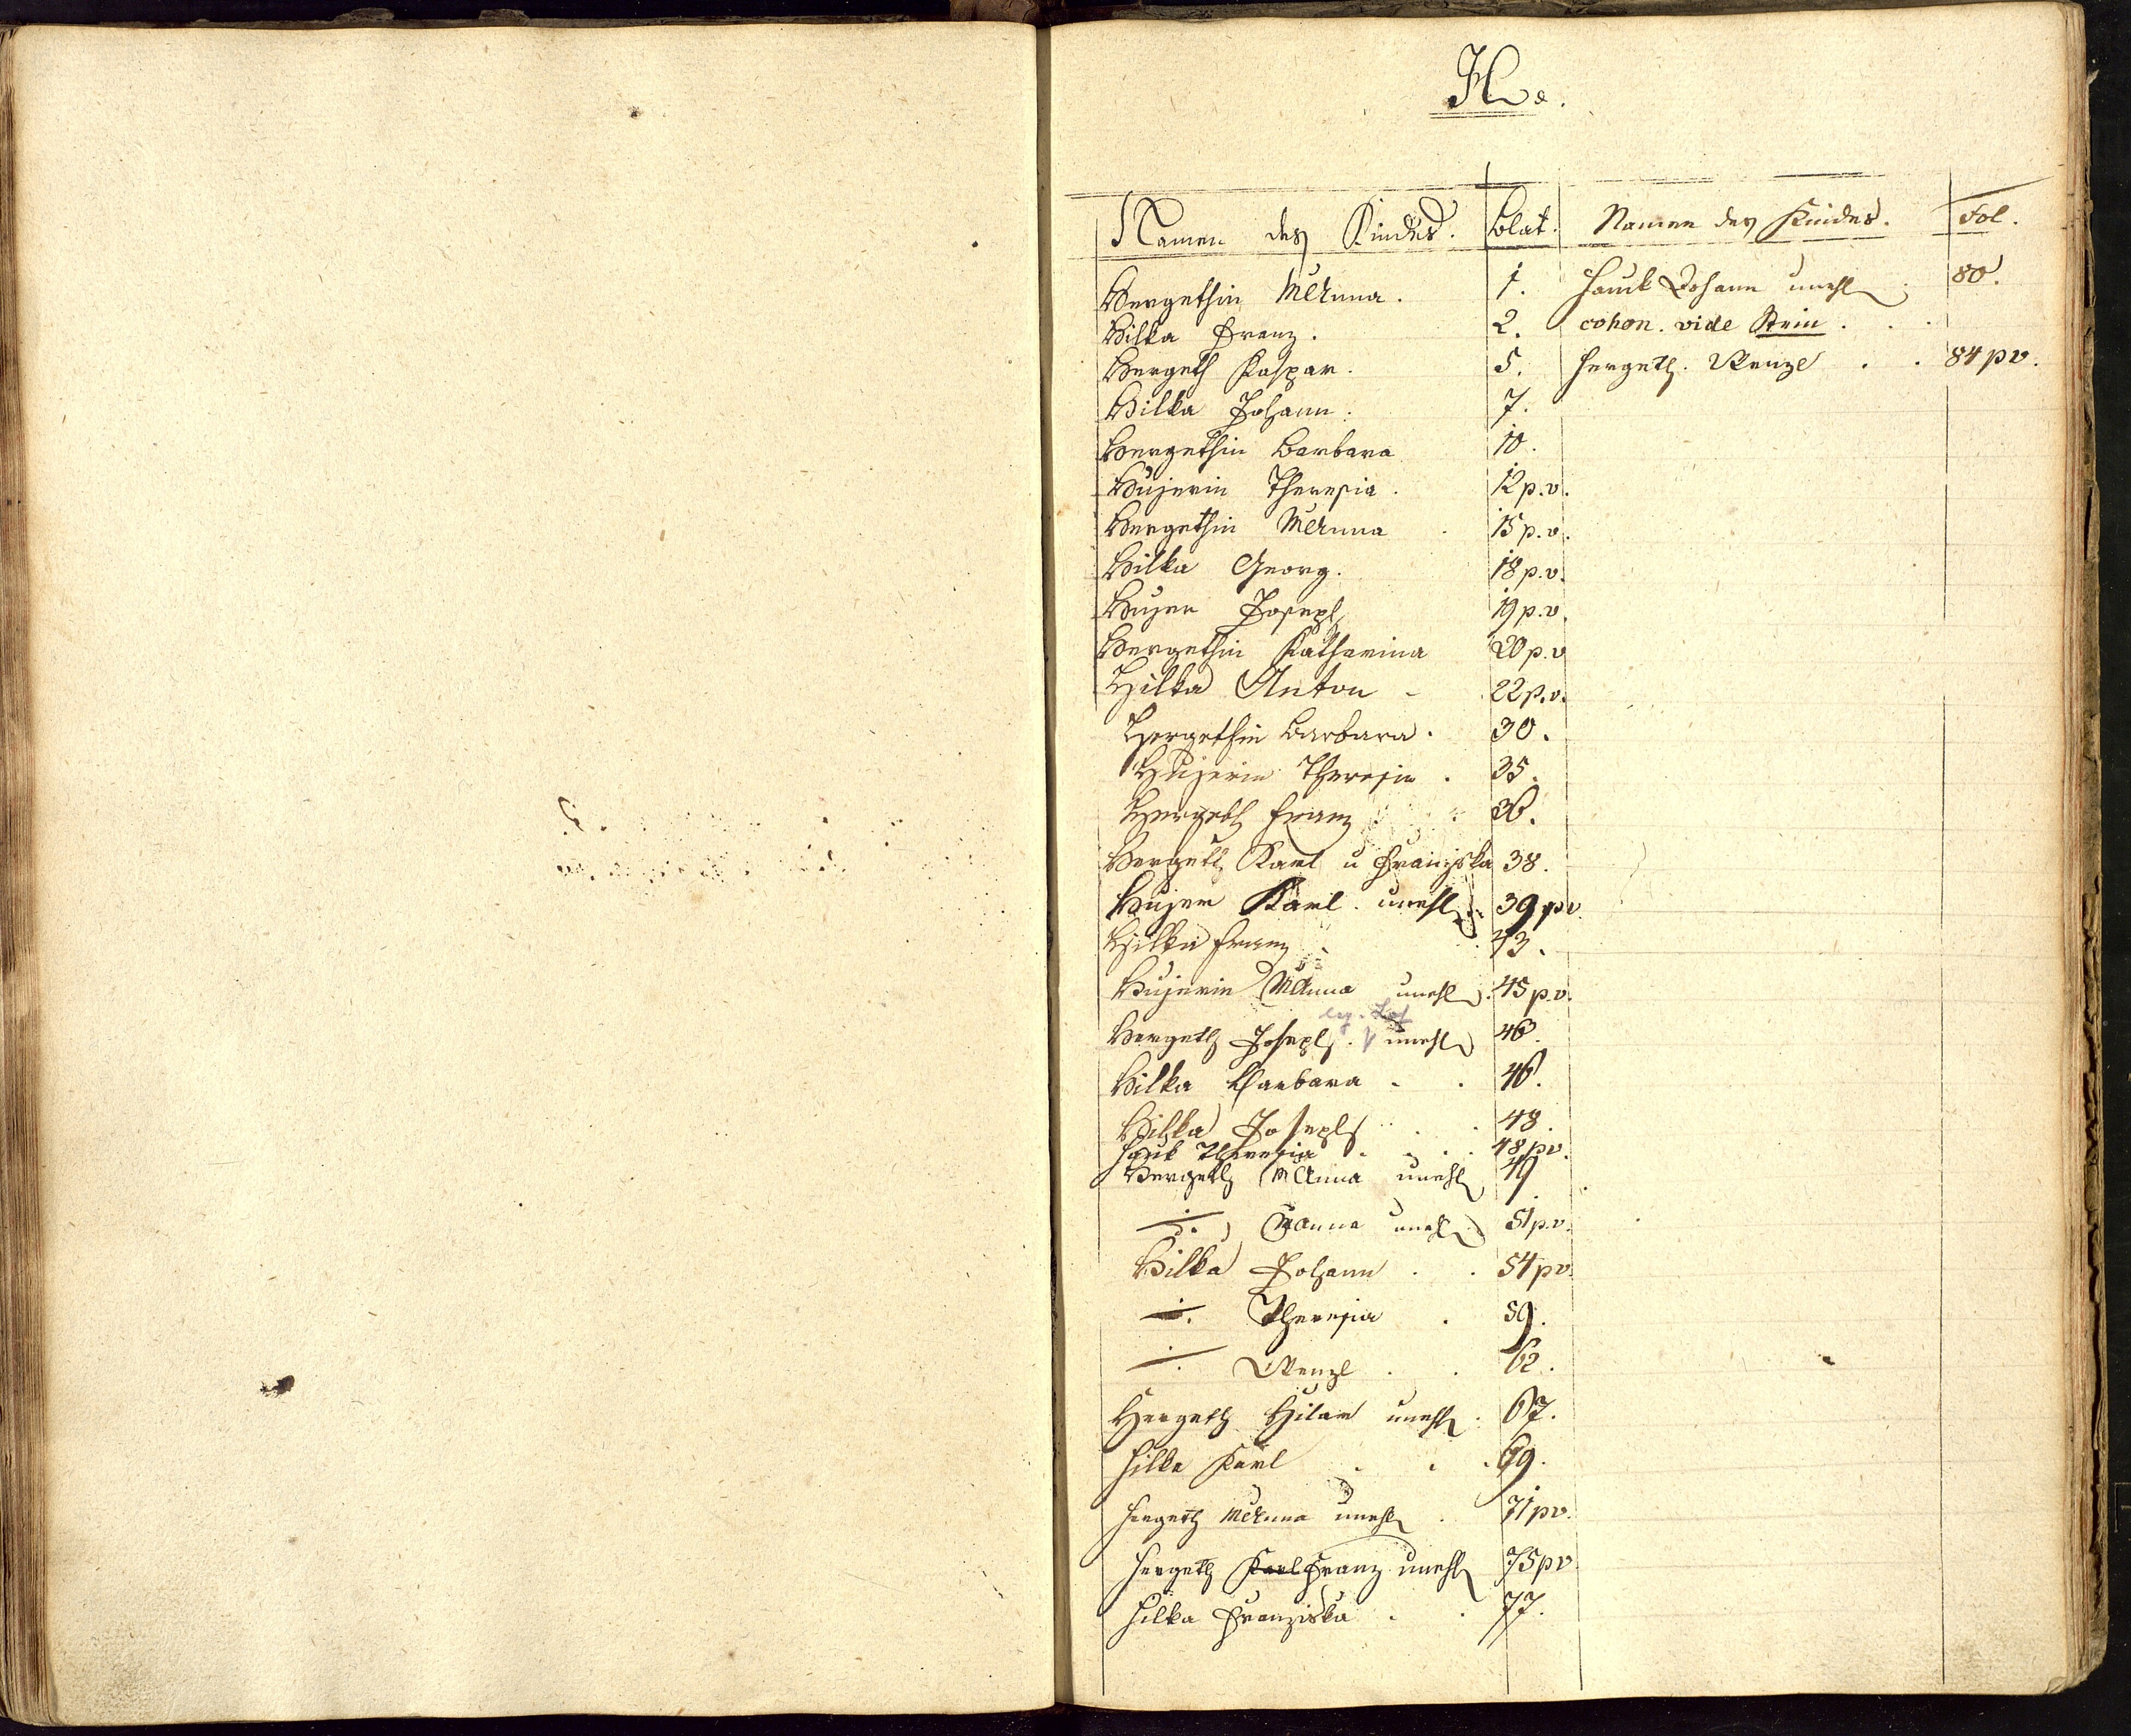 H.
Namen des Kindes. Blat.
Hergethin MAnna. 1.
Hilka Franz. 2.
Hergeth Kaspar. 5.
Hilka Johann. 7.
Hergethin Barbara 10.
Hujerin Theresia. 12 p.v.
Hergethin MAnna 15 p.v.
Hilka Georg. 18 p.v.
Hujer Joseph 19 p.v.
Hergethin Katharina 20 p.v
Hilka Anton - 22 p.v.
Hergethin Barbara. 30.
Hujerin Theresia. 35.
Hergeth Franz 36.
Hergeth Karl u Franziska 38.
Hujer Karl unehl 39 pv.
Hilka Franz 43.
Hujerin MAnna unehl. 45 p.v.
Hergeth Joseph. unehl 46.
Hilka Barbara 46.
Hilka Joseph 48.
Hauk Theresia 48 pv.
Hergeth MAnna unehl 49
÷ Anna unehl 51 p.v.
Hilka Johann 54 pv.
÷ Theresia 59.
÷ Wenzl 62.
Hergeth Hilar unehl. 67.
Hilka Karl 69.
Hergeth MAnna unehl. 71 pv.
Hergeth Karl Franz unehl 75 pv
Hilka Franziska 77.
Namen des Kindes. Fol.
Hauck Johann unehl 80.
cohon. vide Stein
Hergeth. Wenzl 84 pv.